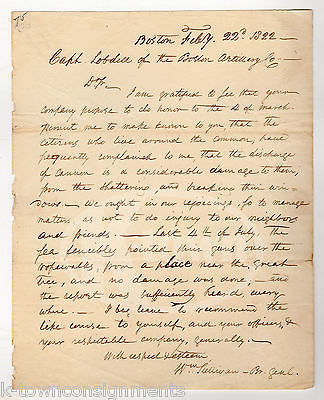 Boston Feby. 22d. 1822
Capt. Lobdell of the Boston Artillery Co.
D Sr,
I am gratified to see that your
company propose to do honor to the 4 of March
permit me to make known to you, that the
citizens who live around the common, have
frequently complained to me that the discharge
of cannon is a considerable damage to them,
from the shattering, and breaking their win-
dows. – We ought in our rejoicings, so to manage
matters as not to do injury to our neighbors
and friends. – Last 4th of July, the
sea fencibles pointed their guns over the
ropewalks, from a place near the great
tree, and no damage was done, – and
the report was sufficiently heard, every
where. – I beg leave to recommend the
like course to yourself, and your officers, &
your respectable company, generally. –
With respect & esteem
Wm. Sullivan – Br. Genl.
k-townconsignments